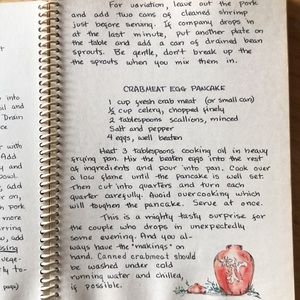 For variation, leave out the pork
and add two cans of cleaned shrimp
just before serving. If company drops in
at the last minute, put another plate on
the table and add a can of drained bean
sprouts. Be gentle, don't break up the
the sprouts when you mix them in.
CRABMEAT EGG PANCAKE
1 cup fresh crab meat (or small can)
½ cup celery, chopped finely
2 tablespoons scallions, minced
Salt and pepper
4 eggs, well beaten
Heat 3 tablespoons cooking oil in heavy
frying pan. Mix the beaten eggs into the rest
of ingredients and pour into pan. Cook over
a low flame until the pancake is well set.
Then cut into quarters and turn each
quarter carefully. Avoid overcooking which
will toughen the pancake. Serve at once.
This is a mighty tasty surprise for
the couple who drops in unexpectedly
some evening. And you al-
ways have the "makings" on
hand. Canned crabmeat should
be washed under cold
running water and chilled,
if possible.